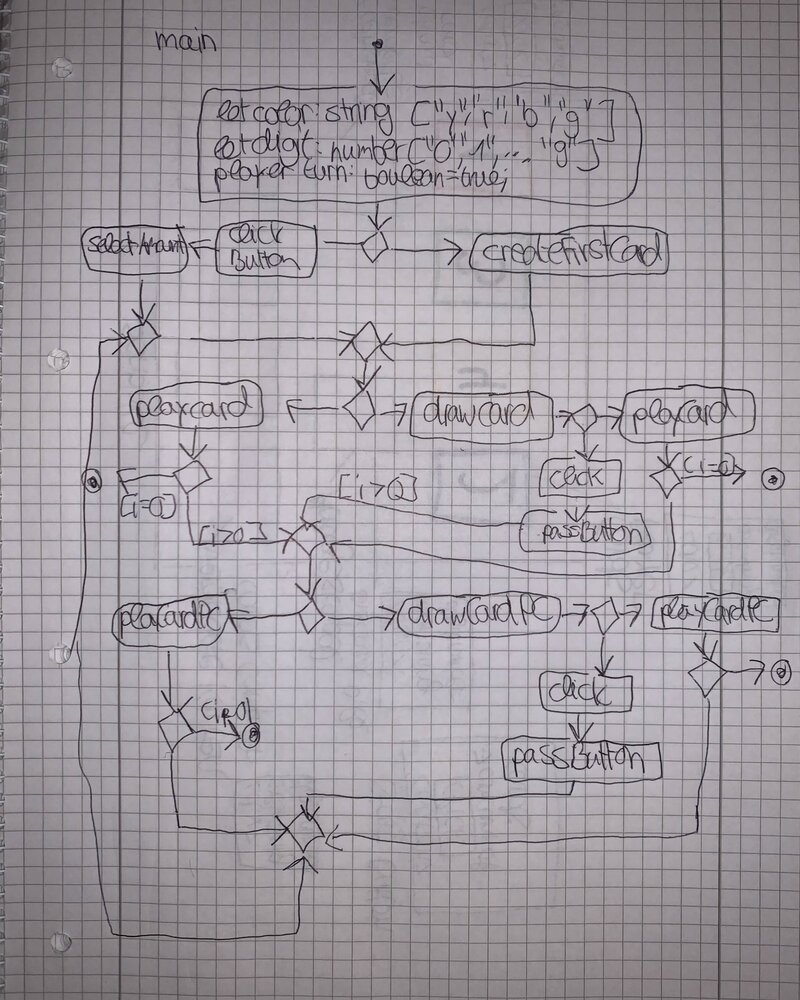 main
let color: string ["y","r","b","g"]
let digit: number ["0","1",... "9"]
player turn: boolean=true;
click
Button
createFirstCard
playcard
drawCard
playCard
[i=0]
click
[i=0]
[i>0]
[i>0]
passButton
playCardPC
drawCardPC
playCardPC
click
passButton